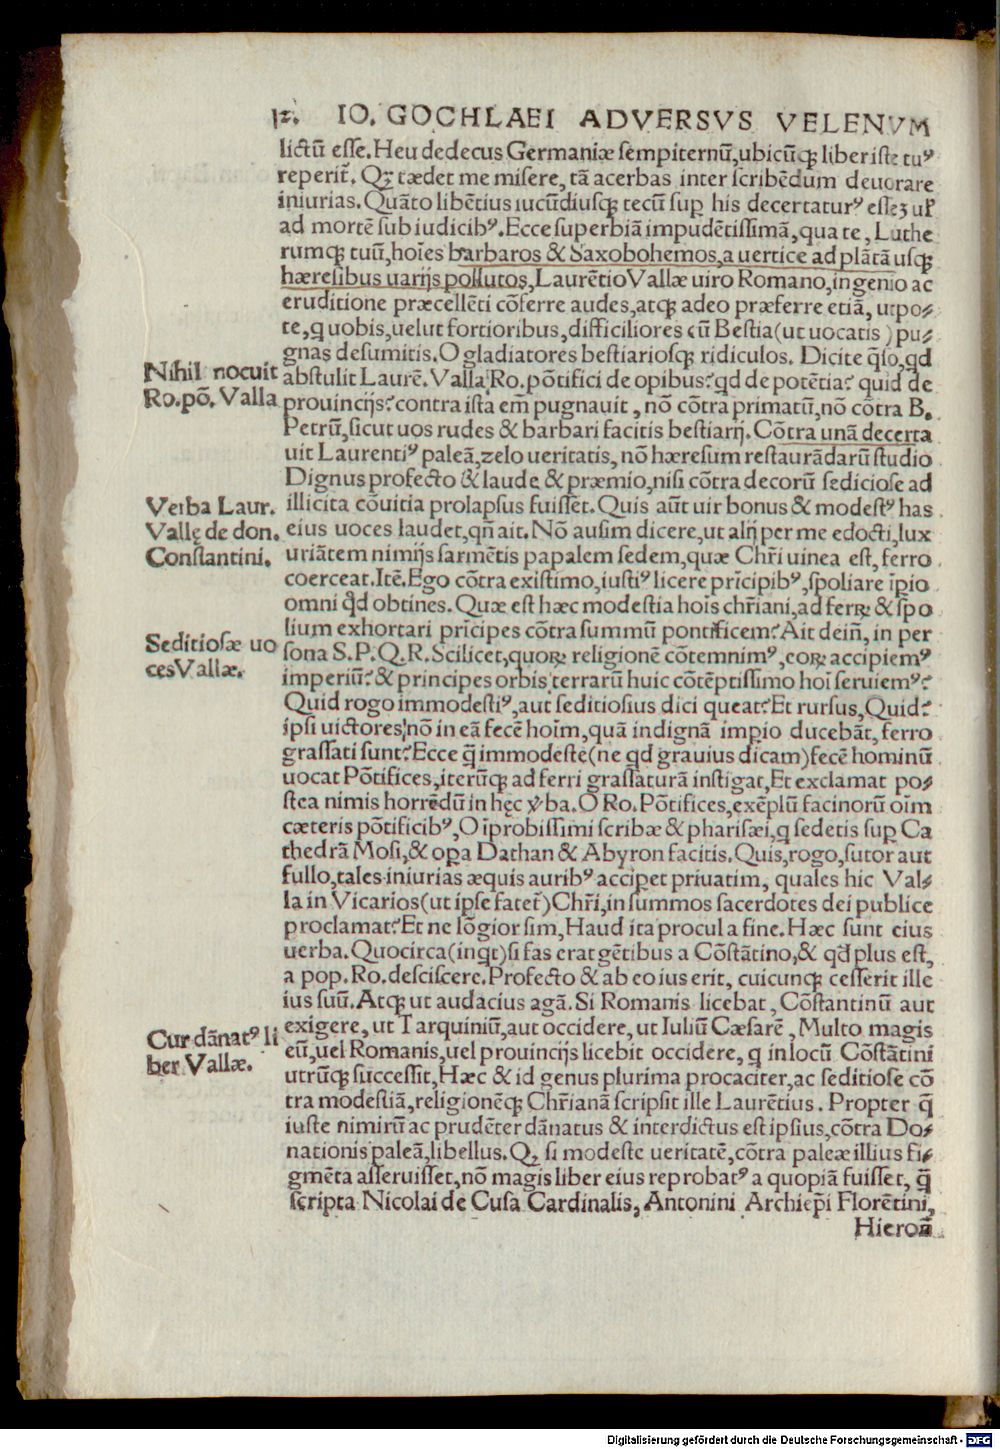 12. IO. GOCHLAEI ADVERSVS VELENVM
lictũ esse. Heu dedecus Germaniæ sempiternũ, ubicũqꝫ liber iste tuꝰ
reperit̃. Qꝫ tædet me misere, tã acerbas inter scribẽdum deuorare
iniurias. Quãto libẽtius iucũdiusqꝫ tecũ sup his decertaturꝰ essẽ
ad mortẽ sub iudicibꝰ. Ecce superbiã impudẽtissimã, qua te, Luthe
rumqꝫ tuũ, hoĩes barbaros & Saxobohemos, a uertice ad plãtã usqꝫ
hæresibus uarijs pollutos, Laurẽtio Vallæ uiro Romano, ingenio ac
eruditione præcellẽti cõferre audes, atqꝫ adeo præferre etiã, utpo⸗
te, q uobis, uelut fortioribus, difficiliores cũ Bestia (ut uocatis) pu⸗
gnas desumitis. O gladiatores bestiariosqꝫ ridiculos. Dicite q̃so, qd
Nihil nocuit
Ro. põ. Valla
abstulit Laurẽ. Valla Ro. põtifici de opibus? qd de potẽtia? quid de
prouincijs? contra ista em̃ pugnauit, nõ cõtra primatũ, nõ cõtra B.
Petrũ, sicut uos rudes & barbari facitis bestiarij. Cõtra unã decerta
uit Laurentiꝰ paleã, zelo ueritatis, nõ hæresum restaurãdarũ studio
Dignus profecto & laude & præmio, nisi cõtra decorũ sediciose ad
Verba Laur.
Vallę de don.
Constantini.
illicita cõuitia prolapsus fuisset. Quis aũt uir bonus & modestꝰ has
eius uoces laudet, qñ ait. Nõ ausim dicere, ut alij per me edocti, lux
uriãtem nimijs sarmẽtis papalem sedem, quæ Chr̃i uinea est, ferro
coerceat. Itẽ. Ego cõtra existimo, iustiꝰ licere prĩcipibꝰ, spoliare ĩpio
omni qd obtines. Quæ est hæc modestia hoĩs chr̃iani, ad ferꝝ & spo
lium exhortari prĩcipes cõtra summũ pontificem? Ait deiñ, in per
Seditiosæ uo
ces Vallæ.
sona S. P. Q. R. Scilicet, quoꝝ religionẽ cõtemnimꝰ, eoꝝ accipiemꝰ
imperiũ? & principes orbis terrarũ huic cõtẽptissimo hoĩ seruiemꝰ?
Quid rogo immodestiꝰ, aut seditiosius dici queat? Et rursus, Quid?
ipsi uictores, nõ in eã fecẽ hoĩm, quã indignã impio ducebãt, ferro
grassati sunt? Ecce q̃ immodeste (ne qd grauius dicam) fecẽ hominũ
uocat Põtifices, iterũqꝫ ad ferri grassaturã instigat, Et exclamat po⸗
stea nimis horrẽdũ in hęc ꝟba. O Ro. Põtifices, exẽplũ facinorũ oĩm
cæteris põtificibꝰ, O ĩprobissimi scribæ & pharisæi, q sedetis sup Ca
thedrã Mosi, & opa Dathan & Abyron facitis. Quis, rogo, sutor aut
fullo, tales iniurias æquis auribꝰ accipet priuatim, quales hic Val⸗
la in Vicarios (ut ipse fatet̃) Chr̃i, in summos sacerdotes dei publice
proclamat? Et ne lõgior sim, Haud ita procul a fine. Hæc sunt eius
uerba. Quocirca (inqt) si fas erat gẽtibus a Cõstãtino, & qd plus est,
a pop. Ro. desciscere. Profecto & ab eo ius erit, cuicunqꝫ cesserit ille
ius suũ. Atqꝫ ut audacius agã. Si Romanis licebat, Cõstantinũ aut
Cur dãnatꝰ li
ber Vallæ.
exigere, ut Tarquiniũ, aut occidere, ut Iuliũ Cæsarẽ, Multo magis
eũ, uel Romanis, uel prouincijs licebit occidere, q in locũ Cõstãtini
utrũqꝫ successit, Hæc & id genus plurima procaciter, ac seditiose cõ
tra modestiã, religionẽqꝫ Chr̃ianã scripsit ille Laurẽtius. Propter q̃
iuste nimirũ ac prudẽter dãnatus & interdictus est ipsius, cõtra Do⸗
nationis paleã, libellus. Qꝫ si modeste ueritatẽ, cõtra paleæ illius fi⸗
gmẽta asseruisset, nõ magis liber eius reprobatꝰ a quopiã fuisset, q̃
scripta Nicolai de Cusa Cardinalis, Antonini Archiep̃i Florẽtini,
Hieronĩ
Digitalisierung gefördert durch die Deutsche Forschungsgemeinschaft - DFG